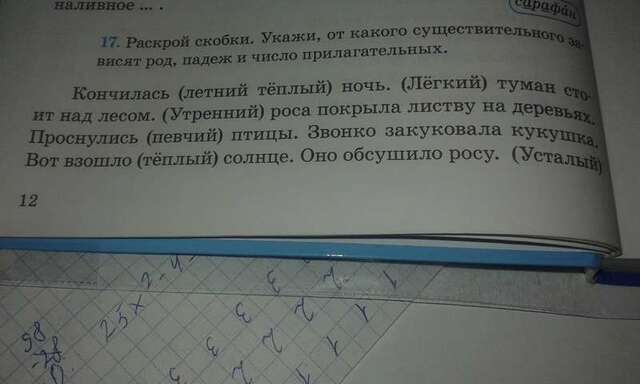 наливное ... .
сарафан
17. Раскрой скобки. Укажи, от какого существительного за-
висят род, падеж и число прилагательных.
Кончилась (летний тёплый) ночь. (Лёгкий) туман сто-
ит над лесом. (Утренний) роса покрыла листву на деревьях.
Проснулись (певчий) птицы. Звонко закуковала кукушка.
Вот взошло (тёплый) солнце. Оно обсушило росу. (Усталый)
12
25 x
1 2 3
1 2 3
1 2 3